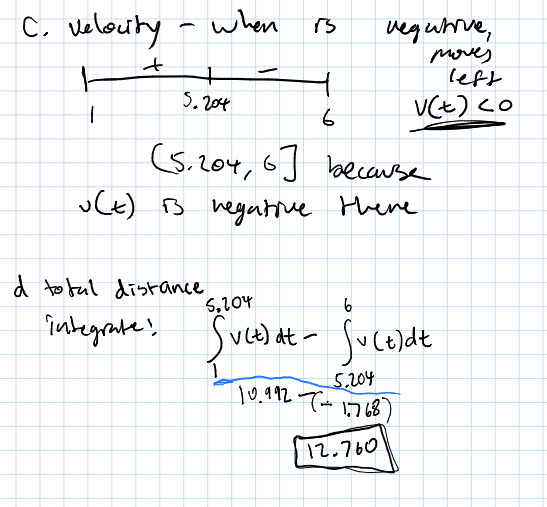 C. velocity - when is negative,
moves
left
v(t) < 0
+ -
1 5.204 6
(5.204, 6] because
v(t) is negative there
d total distance
integrate: ∫₁^5.204 v(t) dt - ∫_5.204^6 v(t) dt
10.992 - (-1.768)
12.760